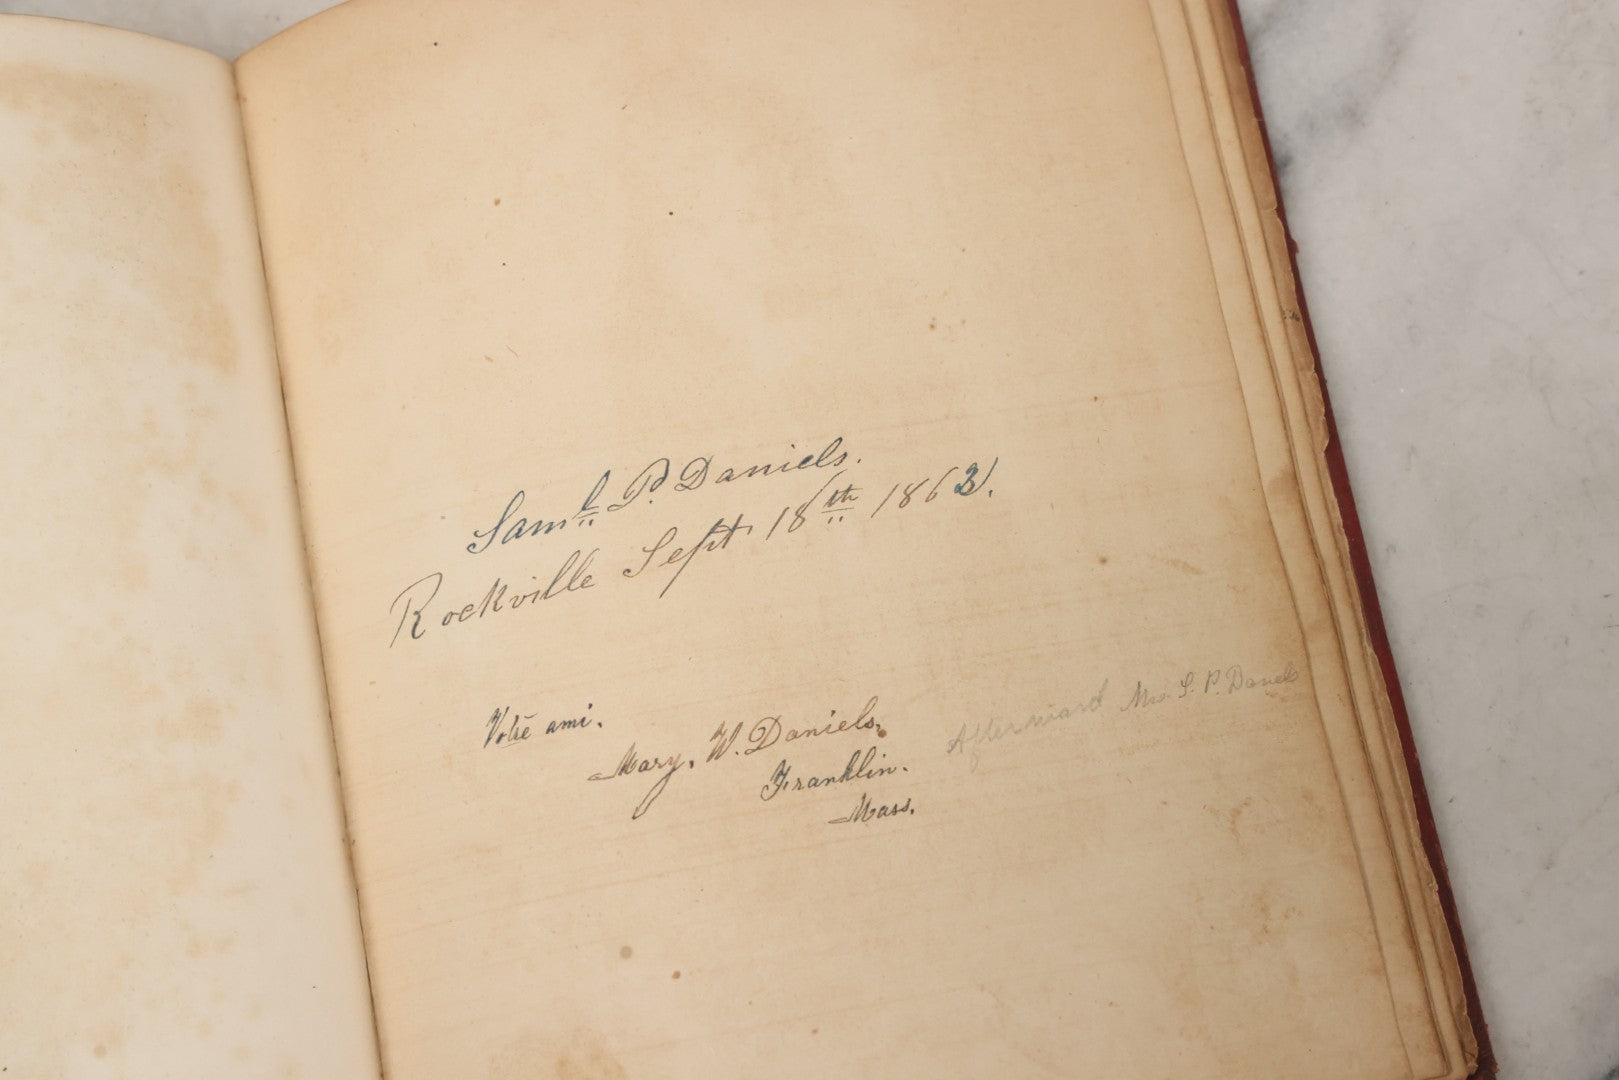 Saml. P. Daniels.
Rockville Sept. 18th 1863.
Votre ami.
Mary. W. Daniels.
Franklin.
Mass.
Afterward Mrs. S. P. Daniels